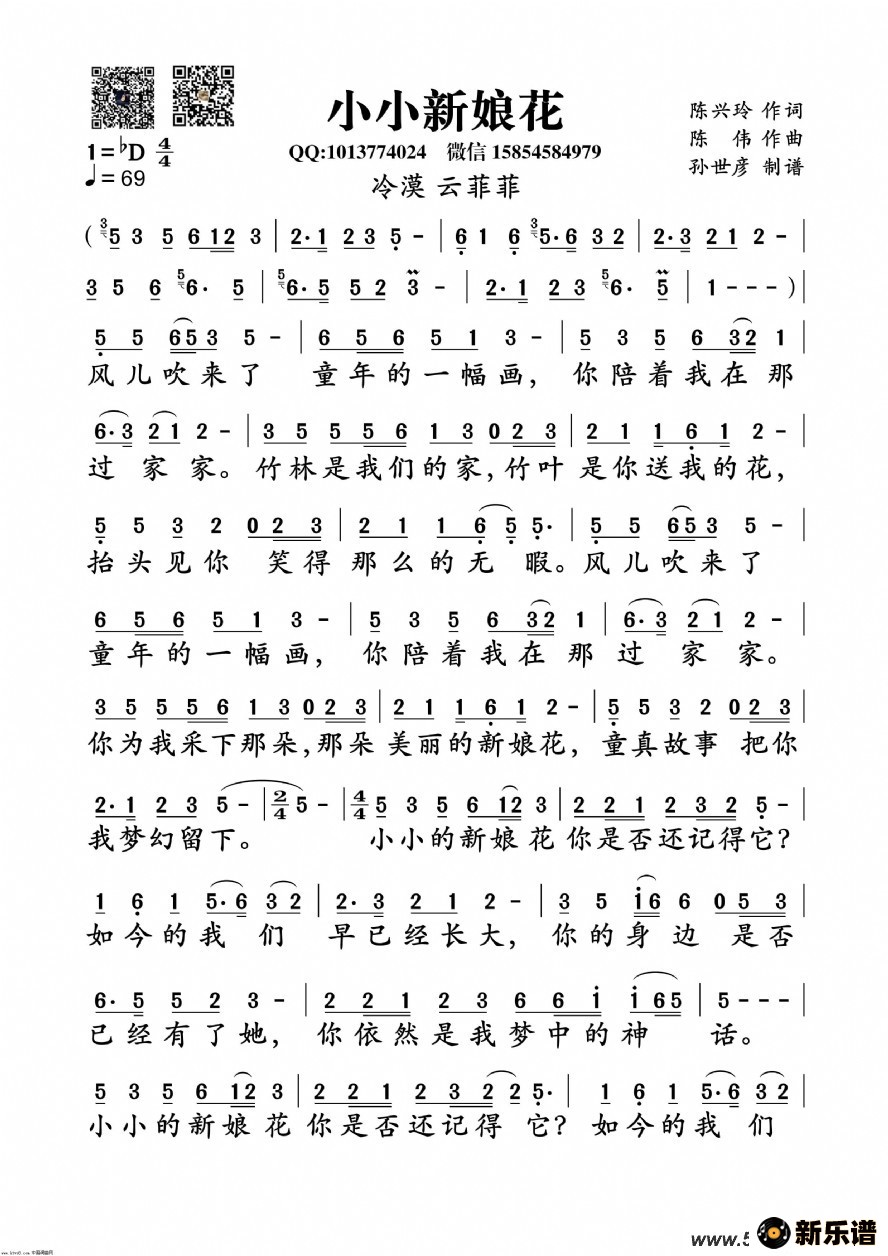 小小新娘花
陈兴玲 作词
1=♭D 4/4
QQ:1013774024 微信 15854584979
陈 伟 作曲
♩=69
冷漠 云菲菲
孙世彦 制谱
( 3 5 3 5 6 1 2 3 | 2· 1 2 3 5 - | 6 1 6 3 5· 6 3 2 | 2· 3 2 1 2 - |
3 5 6 5 6· 5 | 5 6· 5 5 2 3 - | 2· 1 2 3 5 6· 5 | 1 - - - ) |
5 5 6 5 3 5 - | 6 5 6 5 1 3 - | 5 3 5 6 3 2 1 |
风儿吹来了 童年的一幅画, 你陪着我在那
6· 3 2 1 2 - | 3 5 5 5 6 1 3 0 2 3 | 2 1 1 6 1 2 - |
过家家。竹林是我们的家,竹叶是你送我的花,
5 5 3 2 0 2 3 | 2 1 1 6 5 5· | 5 5 6 5 3 5 - |
抬头见你 笑得那么的无 暇。风儿吹来了
6 5 6 5 1 3 - | 5 3 5 6 3 2 1 | 6· 3 2 1 2 - |
童年的一幅画, 你陪着我在那过家家。
3 5 5 5 6 1 3 0 2 3 | 2 1 1 6 1 2 - | 5 5 3 2 0 2 3 |
你为我采下那朵,那朵美丽的新娘花, 童真故事 把你
2· 1 2 3 5 - | 2/4 5 - | 4/4 5 3 5 6 1 2 3 | 2 2 1 2 2 3 2 5 - |
我梦幻留下。 小小的新娘花你是否还记得它?
1 6 1 5· 6 3 2 | 2· 3 2 1 2 - | 3 5 1 6 6 0 5 3 |
如今的我们 早已经长大, 你的身边 是否
6· 5 5 2 3 - | 2 2 1 2 3 6 6 1 1 6 5 | 5 - - - |
已经有了她, 你依然是我梦中的神 话。
5 3 5 6 1 2 3 | 2 2 1 2 2 3 2 5· | 1 6 1 5· 6 3 2 |
小小的新娘花你是否还记得 它? 如今的我们
www.5
新乐谱